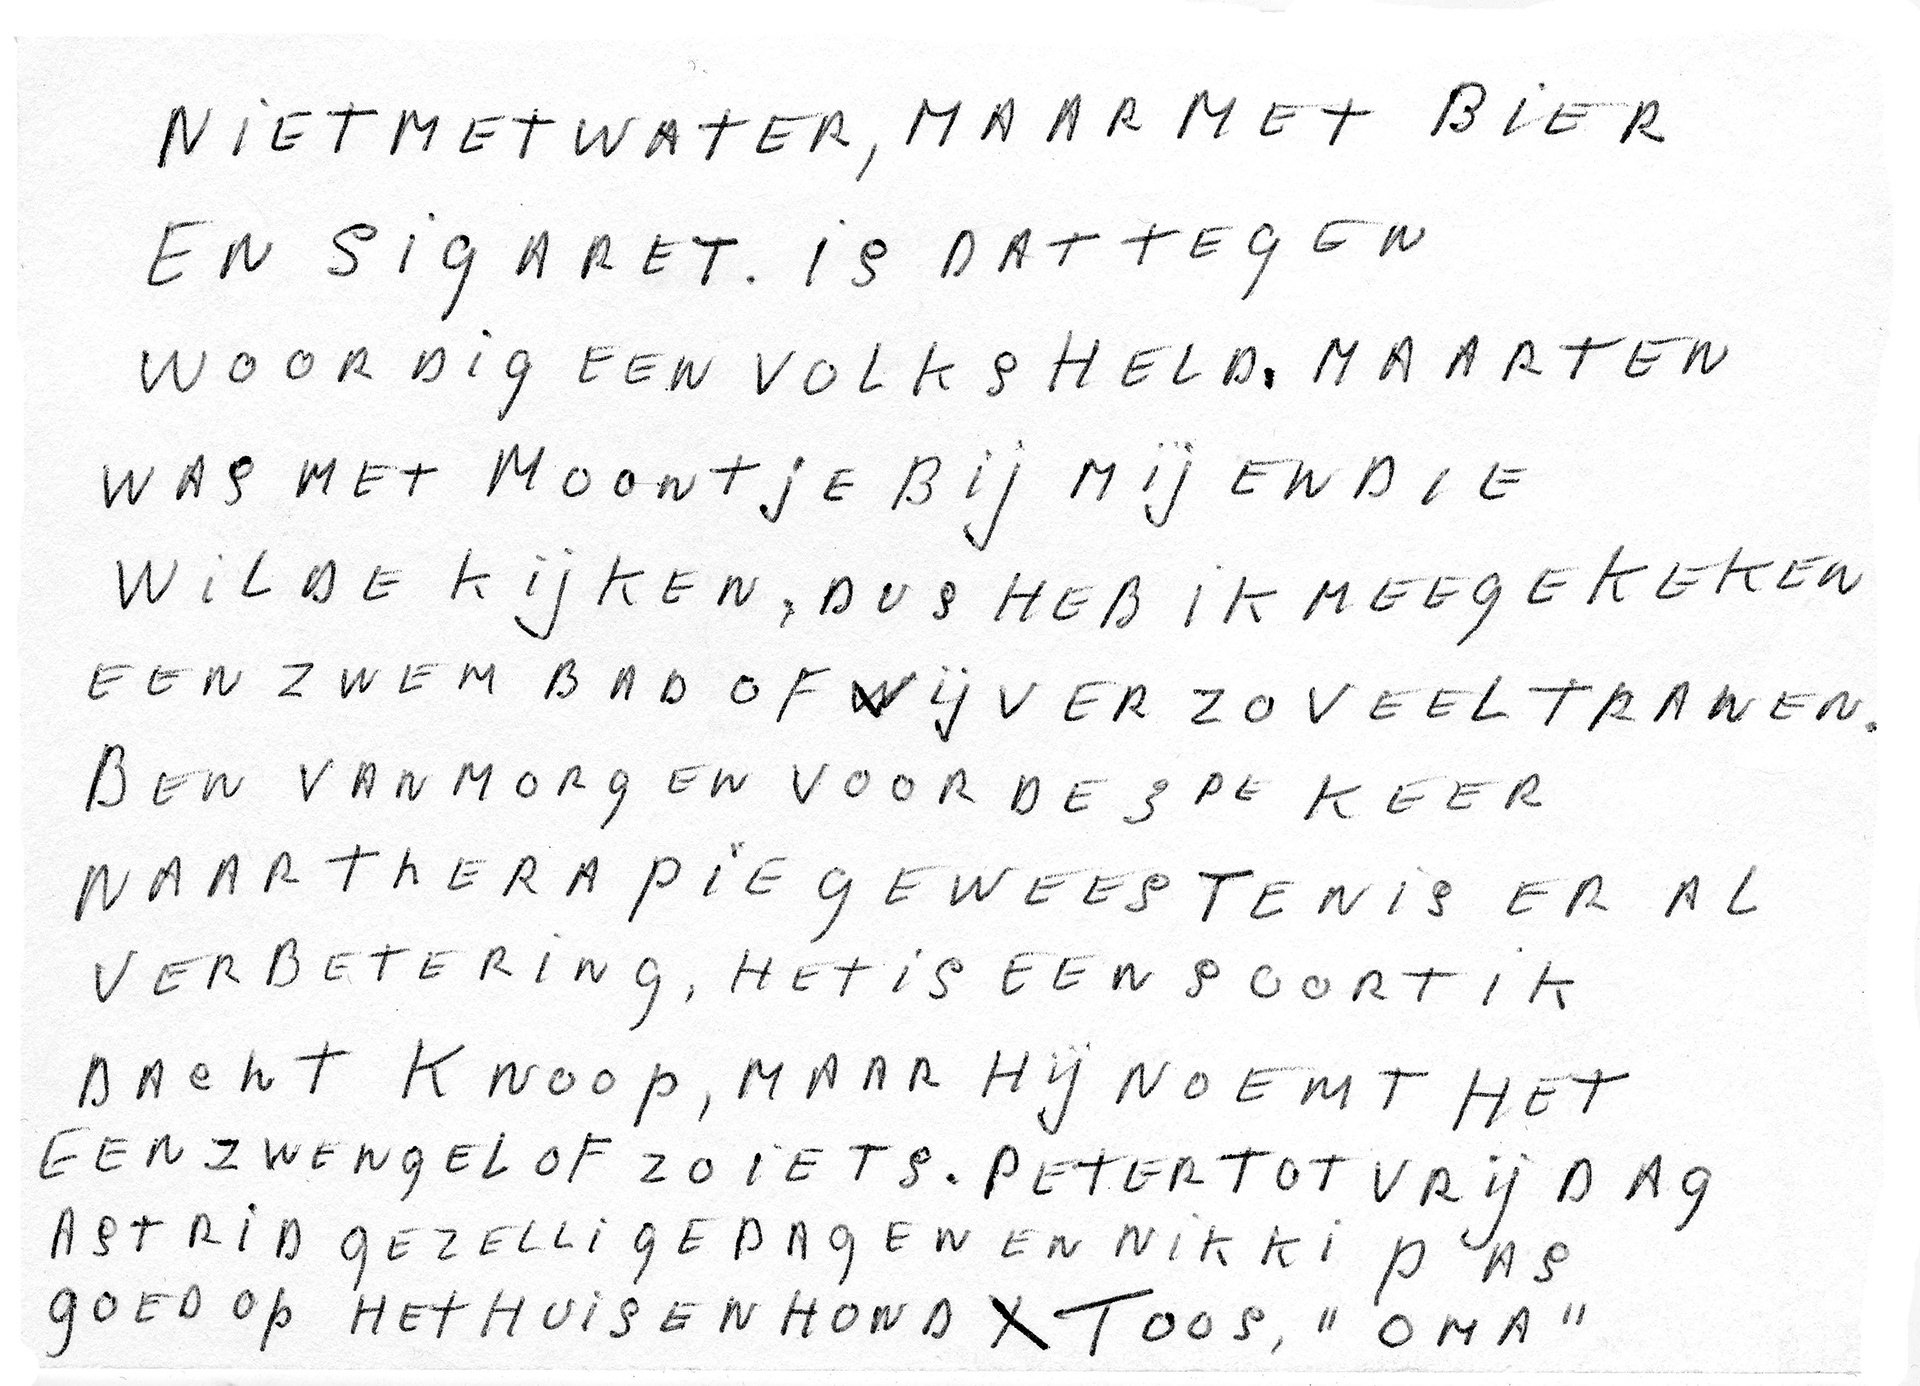 NiET MET WATER, MAAR MET BiER
EN SigARET. iS DAT TEgEN
WOORDig EEN VOLKSHELD. MAARTEN
WAS MET MOONTjE Bij Mij EN DIE
WiLDE KijKEN, DUS HEB iK MEEgEKEKEN
EEN ZWEMBAD OF VijVER ZOVEEL TRANEN.
BEN VANMORgEN VOOR DE 3DE KEER
NAAR ThERAPiE gEWEEST EN iS ER AL
VERBETERiNg, HET iS EEN SOORT iK
DAchT KNOOp, MAAR Hij NOEMT HET
EEN ZWENgEL OF ZOIETS. PETER TOT VRijDAg
ASTRiD gEZELLigE DAgEN EN NiKKi pAS
gOED Op HET HUiS EN HOND X TOOS, "OMA"